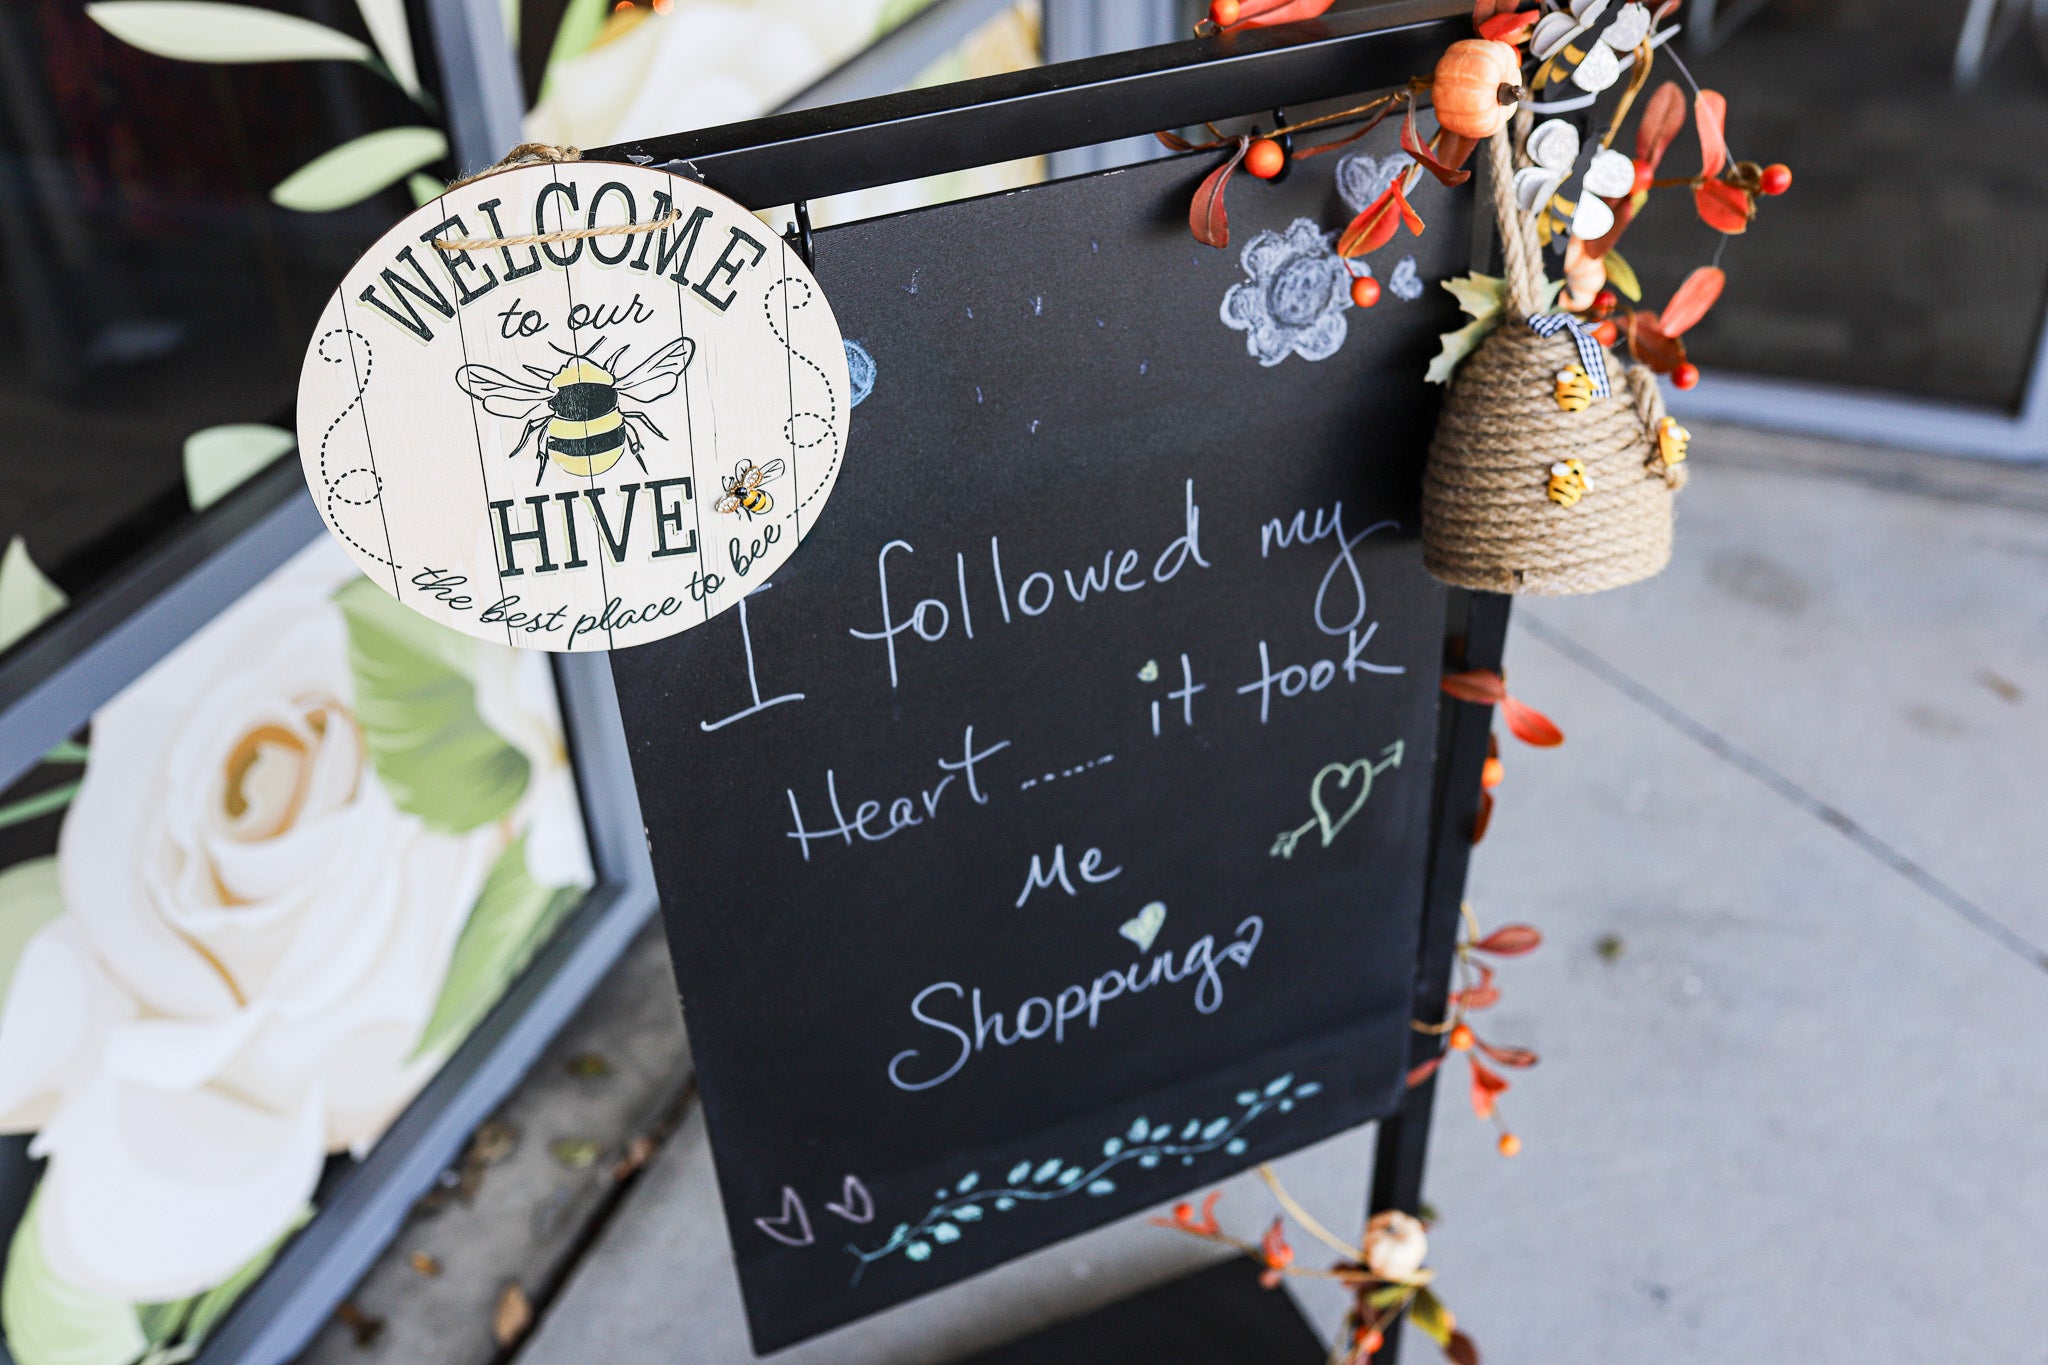 WELCOME
to our
HIVE
the best place to bee
I followed my
Heart ...... it took
Me
Shopping